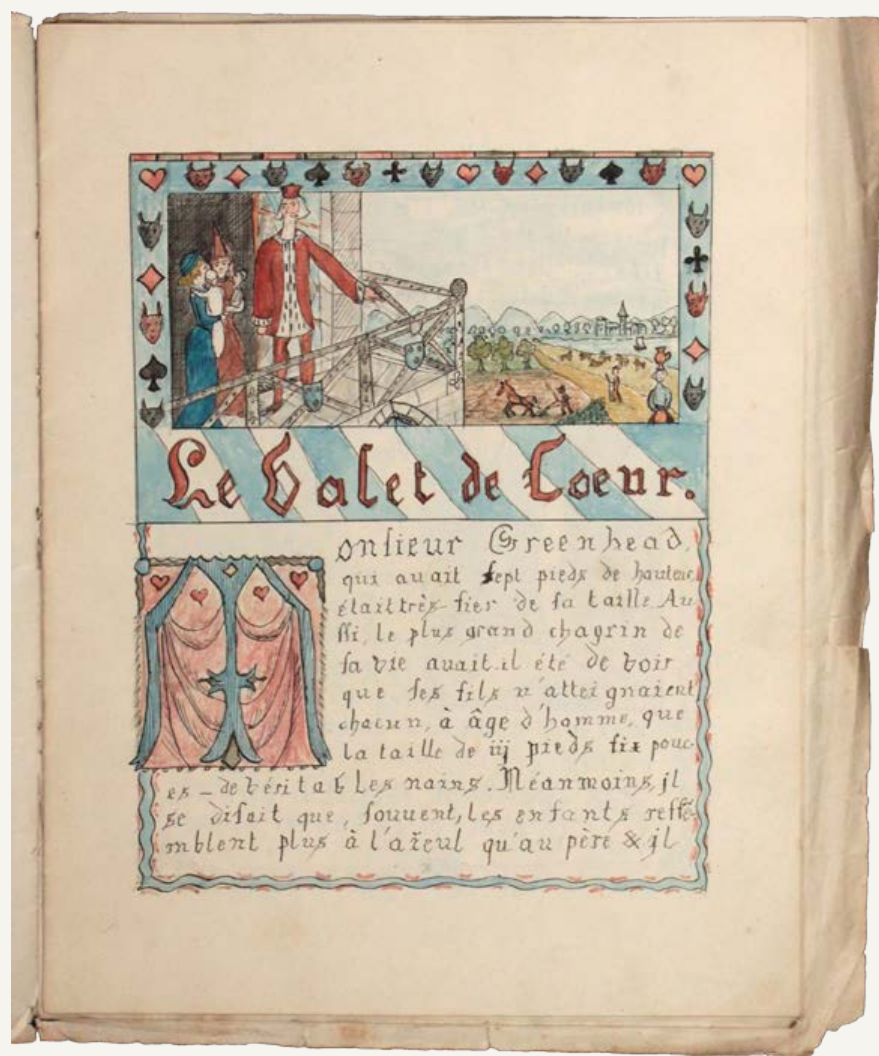 Le Valet de Coeur.
Monſieur Greenhead,
qui auait ſept pieds de hauteur
était très-fier de ſa taille. Au
ſſi, le plus grand chagrin de
ſa vie auait-il été de voir
que ſes fils n'atteignaient
chacun, à âge d'homme, que
la taille de iij pieds ſix pouc-
es – de véritables nains. Néanmoins, jl
se diſait que, ſouuent, les enfants reſſe-
mblent plus à l'aïeul qu'au père & jl